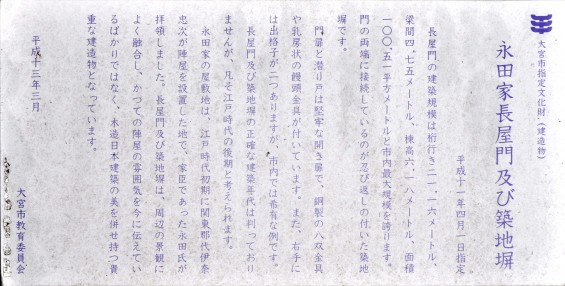 大宮市指定文化財(建造物)
永田家長屋門及び築地塀
平成十一年四月一日指定
長屋門の建築規模は桁行き二一.一六メートル、
梁間四.七五メートル、棟高六.一八メートル、面積
一〇〇.五一平方メートルと市内最大規模を誇ります。
門の両端に接続しているのが忍び返しの付いた築地
塀です。
門扉と潜り戸は堅牢な開き扉で、鋼製の八双金具
や乳房状の饅頭金具が付いています。また、右手に
は出格子が二つありますが、市内では希有な例です。
長屋門及び築地塀の正確な建築年代は判っており
ませんが、凡そ江戸時代の後期と考えられます。
永田家の屋敷地は、江戸時代初期に関東郡代伊奈
忠次が陣屋を設置した地で、家臣であった永田氏が
拝領しました。長屋門及び築地塀は、周辺の景観に
よく融合し、かつての陣屋の雰囲気を今に伝えてい
るばかりではなく、木造日本建築の美を併せ持つ貴
重な建造物となっています。
平成十三年三月
大宮市教育委員会